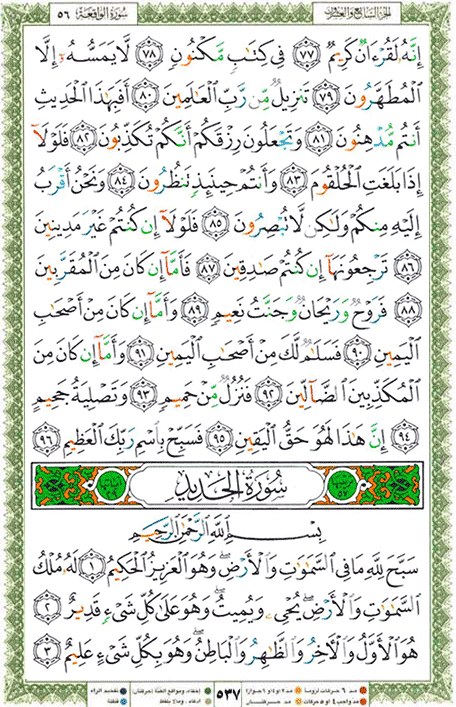 الجزء السابع والعشرون
سورة الواقعة ٥٦
إِنَّهُۥ لَقُرْءَانٌ كَرِيمٌ ٧٧ فِى كِتَٰبٍ مَّكْنُونٍ ٧٨ لَّا يَمَسُّهُۥٓ إِلَّا
ٱلْمُطَهَّرُونَ ٧٩ تَنزِيلٌ مِّن رَّبِّ ٱلْعَٰلَمِينَ ٨٠ أَفَبِهَٰذَا ٱلْحَدِيثِ
أَنتُم مُّدْهِنُونَ ٨١ وَتَجْعَلُونَ رِزْقَكُمْ أَنَّكُمْ تُكَذِّبُونَ ٨٢ فَلَوْلَآ
إِذَا بَلَغَتِ ٱلْحُلْقُومَ ٨٣ وَأَنتُمْ حِينَئِذٍ تَنظُرُونَ ٨٤ وَنَحْنُ أَقْرَبُ
إِلَيْهِ مِنكُمْ وَلَٰكِن لَّا تُبْصِرُونَ ٨٥ فَلَوْلَآ إِن كُنتُمْ غَيْرَ مَدِينِينَ
٨٦ تَرْجِعُونَهَآ إِن كُنتُمْ صَٰدِقِينَ ٨٧ فَأَمَّآ إِن كَانَ مِنَ ٱلْمُقَرَّبِينَ
٨٨ فَرَوْحٌ وَرَيْحَانٌ وَجَنَّتُ نَعِيمٍ ٨٩ وَأَمَّآ إِن كَانَ مِنْ أَصْحَٰبِ
ٱلْيَمِينِ ٩٠ فَسَلَٰمٌ لَّكَ مِنْ أَصْحَٰبِ ٱلْيَمِينِ ٩١ وَأَمَّآ إِن كَانَ مِنَ
ٱلْمُكَذِّبِينَ ٱلضَّآلِّينَ ٩٢ فَنُزُلٌ مِّنْ حَمِيمٍ ٩٣ وَتَصْلِيَةُ جَحِيمٍ
٩٤ إِنَّ هَٰذَا لَهُوَ حَقُّ ٱلْيَقِينِ ٩٥ فَسَبِّحْ بِٱسْمِ رَبِّكَ ٱلْعَظِيمِ ٩٦
سُورَةُ الحَدِيدِ
بِسْمِ ٱللَّهِ ٱلرَّحْمَٰنِ ٱلرَّحِيمِ
سَبَّحَ لِلَّهِ مَا فِى ٱلسَّمَٰوَٰتِ وَٱلْأَرْضِ ۖ وَهُوَ ٱلْعَزِيزُ ٱلْحَكِيمُ ١ لَهُۥ مُلْكُ
ٱلسَّمَٰوَٰتِ وَٱلْأَرْضِ ۖ يُحْىِۦ وَيُمِيتُ ۖ وَهُوَ عَلَىٰ كُلِّ شَىْءٍ قَدِيرٌ ٢
هُوَ ٱلْأَوَّلُ وَٱلْءَاخِرُ وَٱلظَّٰهِرُ وَٱلْبَاطِنُ ۖ وَهُوَ بِكُلِّ شَىْءٍ عَلِيمٌ ٣
٥٣٧